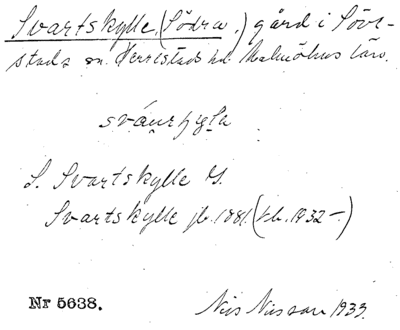 Svartskylle, (Södra.) gård i Söve-
stads sn. Herrestads hd. Malmöhus län.
S. Svartskylle
Svartskylle jb. 1881. (kb. 1932 –)
Nr 5638.
Nils Nilsson 1933.